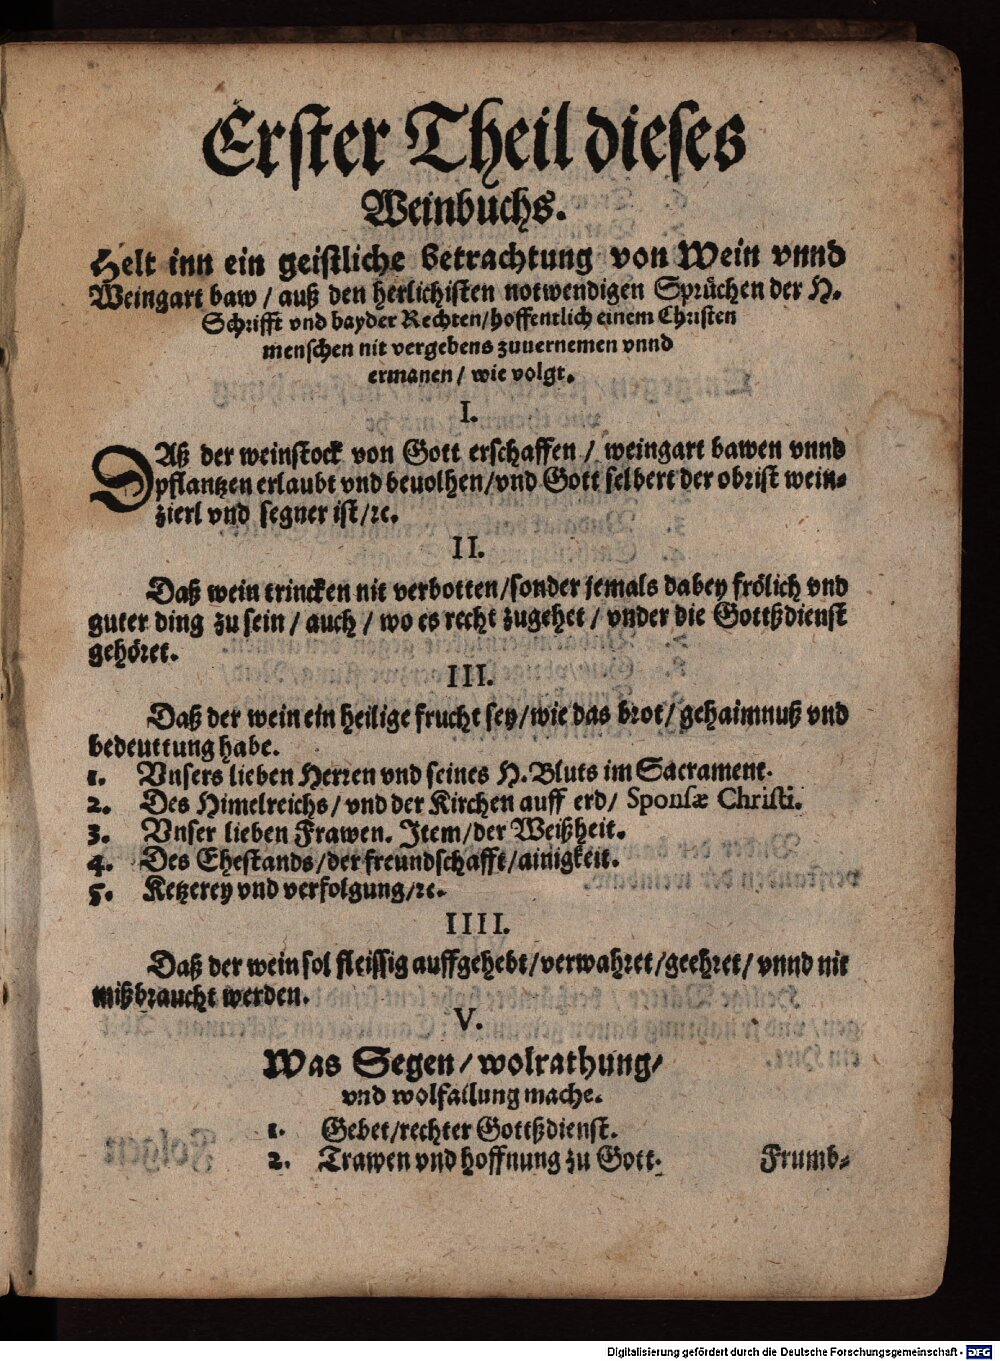 Erster Theil dieses
Weinbuchs.
Helt inn ein geistliche betrachtung von Wein vnnd
Weingart baw / auß den herlichisten notwendigen Sprüchen der H.
Schrifft vnd bayder Rechten/hoffentlich einem Christen
menschen nit vergebens zuuernemen vnnd
ermanen / wie volgt.
I.
DAß der weinstock von Gott erschaffen / weingart bawen vnnd
pflantzen erlaubt vnd beuolhen/vnd Gott selbert der obrist wein-
zierl vnd segner ist/ꝛc.
II.
Daß wein trincken nit verbotten/sonder jemals dabey frölich vnd
guter ding zu sein / auch / wo es recht zugehet / vnder die Gottßdienst
gehöret.
III.
Daß der wein ein heilige frucht sey/wie das brot/gehaimnuß vnd
bedeuttung habe.
1. Vnsers lieben Herren vnd seines H. Bluts im Sacrament.
2. Des Himelreichs/vnd der Kirchen auff erd/ Sponsæ Christi.
3. Vnser lieben Frawen. Item/der Weißheit.
4. Des Ehestands/der freundschafft/ainigkeit.
5. Ketzerey vnd verfolgung/ꝛc.
IIII.
Daß der wein sol fleissig auffgehebt/verwahret/geehret/vnnd nit
mißbraucht werden.
V.
Was Segen/wolrathung/
vnd wolfailung mache.
1. Gebet/rechter Gottßdienst.
2. Trawen vnd hoffnung zu Gott.
Frumb-
Digitalisierung gefördert durch die Deutsche Forschungsgemeinschaft - DFG